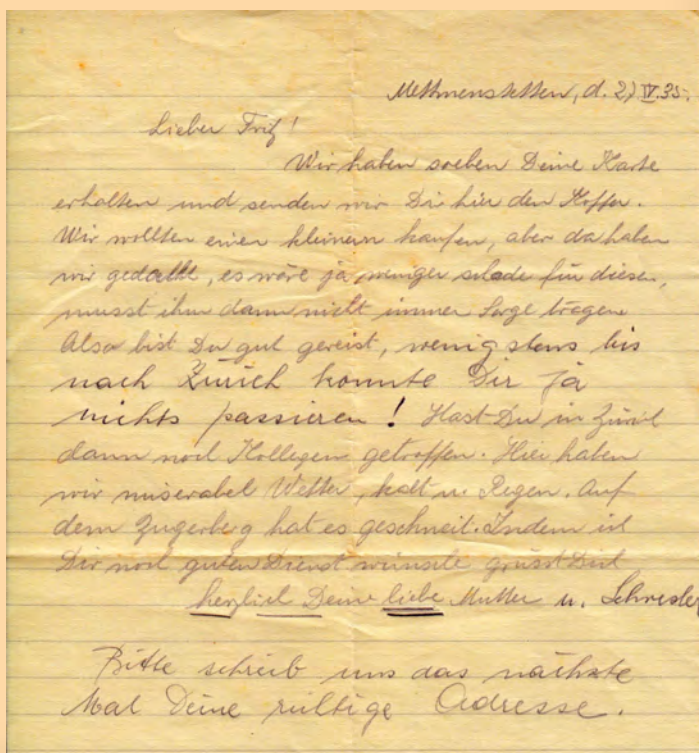 Mettmenstetten, d. 27.IV.35.
Lieber Fritz!
Wir haben soeben Deine Karte
erhalten und senden wir Dir hier den Koffer.
Wir wollten einen kleinern kaufen, aber da haben
wir gedacht, es wäre ja weniger schade für diesen,
musst ihm dann nicht immer Sorge tragen
Also bist Du gut gereist, wenigstens bis
nach Zürich konnte Dir ja
nichts passieren! Hast Du in Zürich
dann noch Kollegen getroffen. Hier haben
wir miserabel Wetter, kalt u. Regen. Auf
dem Zugerberg hat es geschneit. Indem ich
Dir noch guten Dienst wünsche grüsst Dich
herzlich Deine liebe Mutter u. Schwester
Bitte schreib uns das nächste
Mal Deine richtige Adresse.